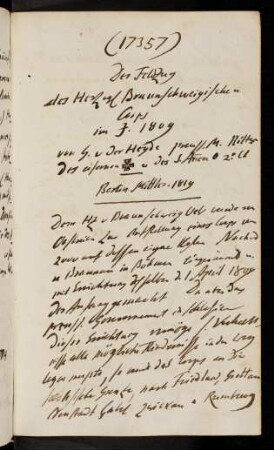 (17357)
Der Feldzug
des Herzogl Braunschweigischen
Corps
im J. 1809
von G. v der Heyde preuss. M. Ritter
des eisernen ✠ u des S. Annen O 2t Cl
Berlin Mittler. 1819
Dem Hz v Braunschweig Oels wurde von
Oestreich zur Aufstellung eines Corps von
2000 auf dessen eigne Kosten
in Böhmen
mit Errichtung desselben d 1 April 1809
der Anfang gemacht. Da aber das
preuss. Gouvernement in Schlesien
dieser Errichtung
alle mögliche Hindernisse in den Weg
legen musste, so wurde das Corps an die
Grenze, nach Friedland, Grottau
Neustadt Gabel, Zwickau u Rumburg